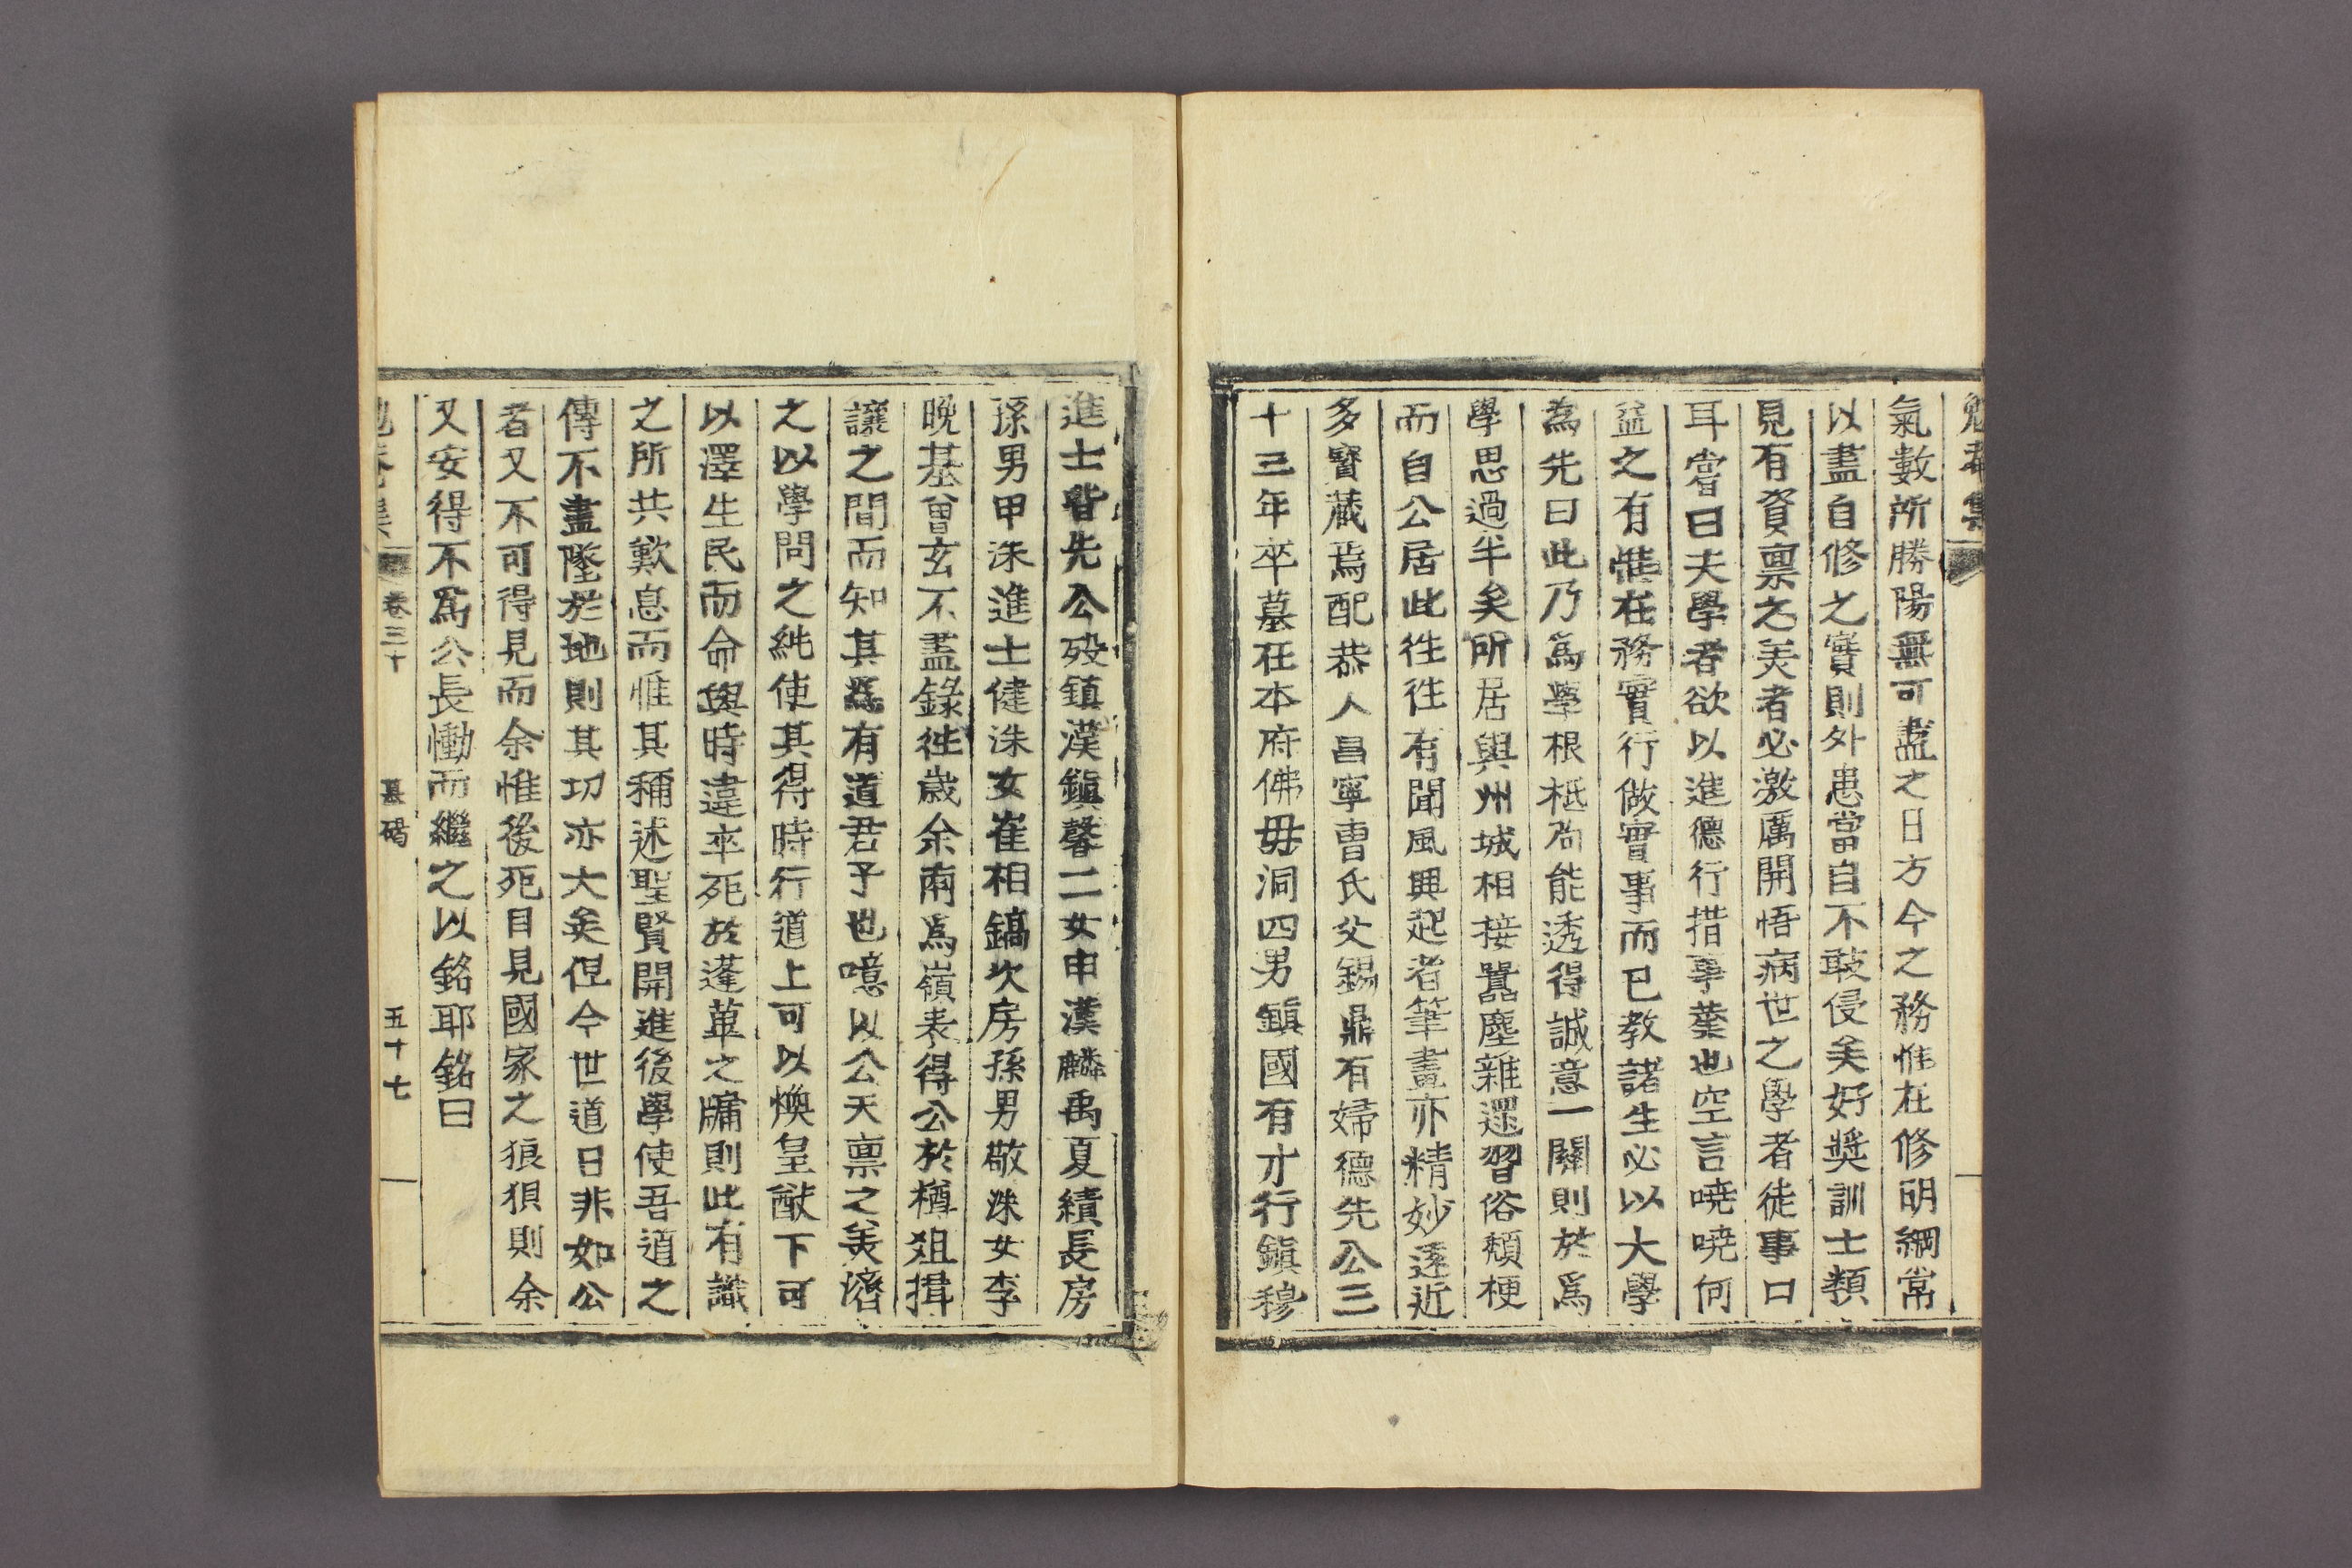 集
氣數所勝陽無可盡之日方今之務惟在修明綱常
以盡自修之實則外患當自不敢侵矣好奬訓士類
見有資稟之美者必激厲開悟病世之學者徒事口
耳嘗曰夫學者欲以進德行措事業也空言嘵嘵何
益之有惟在務實行做實事而已教諸生必以大學
為先曰此乃爲學根柢尙能透得誠意一關則於爲
學思過半矣所居與州城相接囂塵雜遝習俗頹梗
而自公居此徃徃有聞風興起者筆畫亦精妙遠近
多寶藏焉配恭人昌寧曺氏父錫鼎有婦德先公三
十三年卒墓在本府佛毋洞四男鎭國有才行鎭穆
進士皆先公歿鎭漢鎭馨二女申漢麟禹夏績長房
孫男甲洙進士健洙女崔相鎬次房孫男敬洙女李
晩基曾玄不盡錄徃歲余南爲嶺表得公於樽俎揖
讓之間而知其爲有道君子也噫以公天稟之美濟
之以學問之純使其得時行道上可以煥皇猷下可
以澤生民而命與時違卒死於蓬蓽之牖則此有識
之所共歎息而惟其稱述聖賢開進後學使吾道之
傳不盡墜於地則其功亦大矣但今世道日非如公
者又不可得見而余惟後死目見國家之狼狽則余
又安得不爲公長慟而繼之以銘耶銘曰
卷三十 墓碣 五十七